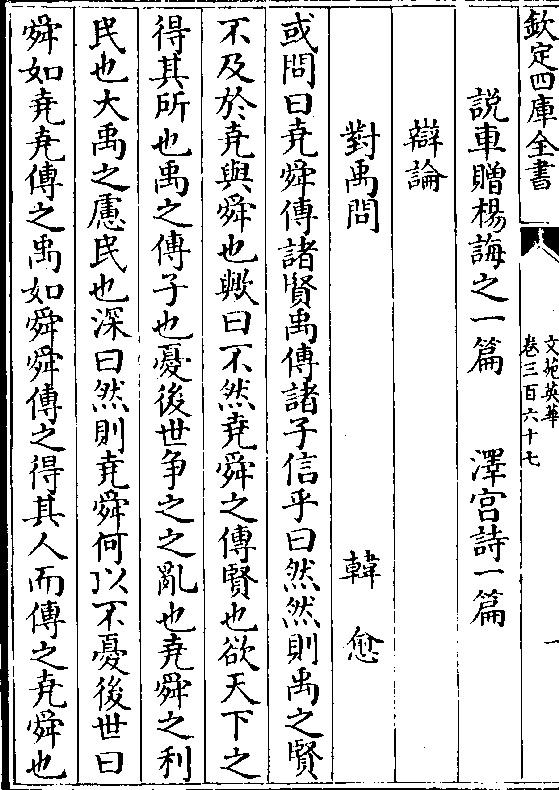 欽定四庫全書
文苑英華
卷三百六十七
一
說車贈楊誨之一篇 澤宫詩一篇
辯論
對禹問 韓愈
或問曰堯舜傳諸賢禹傳諸子信乎曰然然則禹之賢
不及於堯與舜也歟曰不然堯舜之傳賢也欲天下之
得其所也禹之傳子也憂後世争之之亂也堯舜之利
民也大禹之慮民也深曰然則堯舜何以不憂後世曰
舜如堯堯傳之禹如舜舜傳之得其人而傳之堯舜也